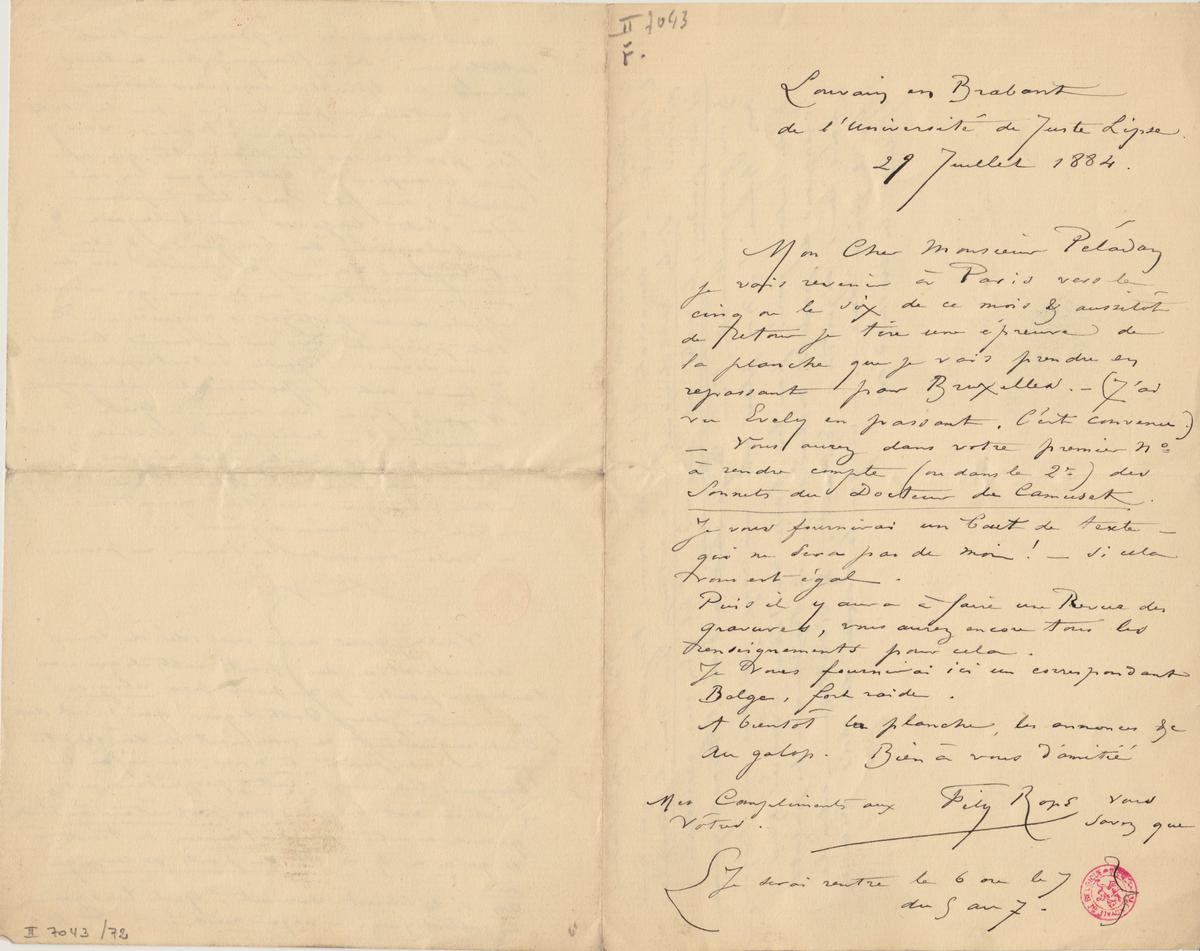 II 7043
F.
Louvain en Brabant
de l'Université de Juste Lipse.
29 Juillet 1884.
Mon Cher Monsieur Péladan
je vais revenir à Paris vers le
cinq ou le six de ce mois & aussitôt
de retour je tire une épreuve de
la planche que je vais prendre en
repassant par Bruxelles. – (J'ai
vu Evely en passant. C'est convenu.)
– Vous aurez dans votre premier nº
à rendre compte (ou dans le 2e) des
Sonnets du Docteur de Camuset.
Je vous fournirai un bout de texte –
qui ne sera pas de moi! – si cela
vous est égal.
Puis il y aura à faire une Revue des
gravures, vous aurez encore tous les
renseignements pour cela.
Je vous fournirai ici un correspondant
Belge, fort raide.
A bientôt la planche, les annonces &c
Au galop. Bien à vous d'amitié
Mes Compliments aux Fély Rops vous
Vôtres. savez que
Je serai rentré le 6 ou le 7
du 5 au 7.
II 7043 /72